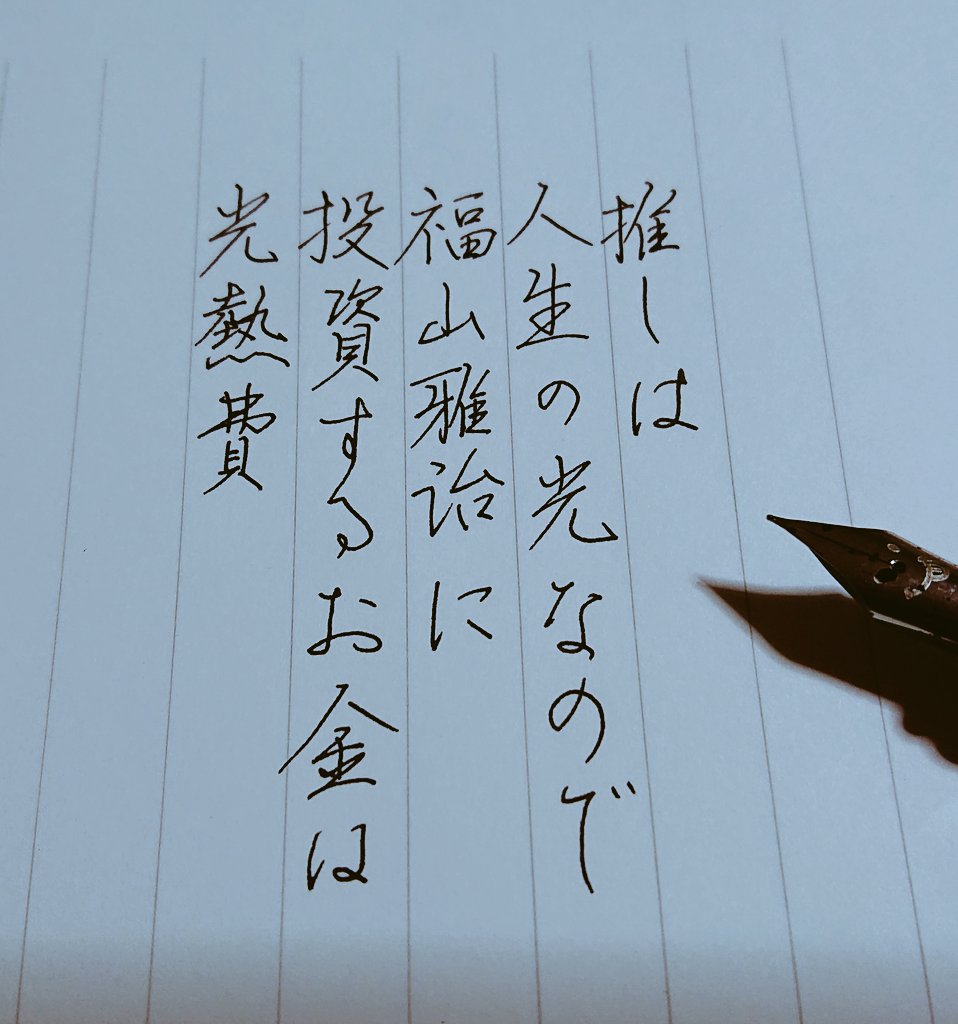 推しは
人生の光なので
福山雅治に
投資するお金は
光熱費